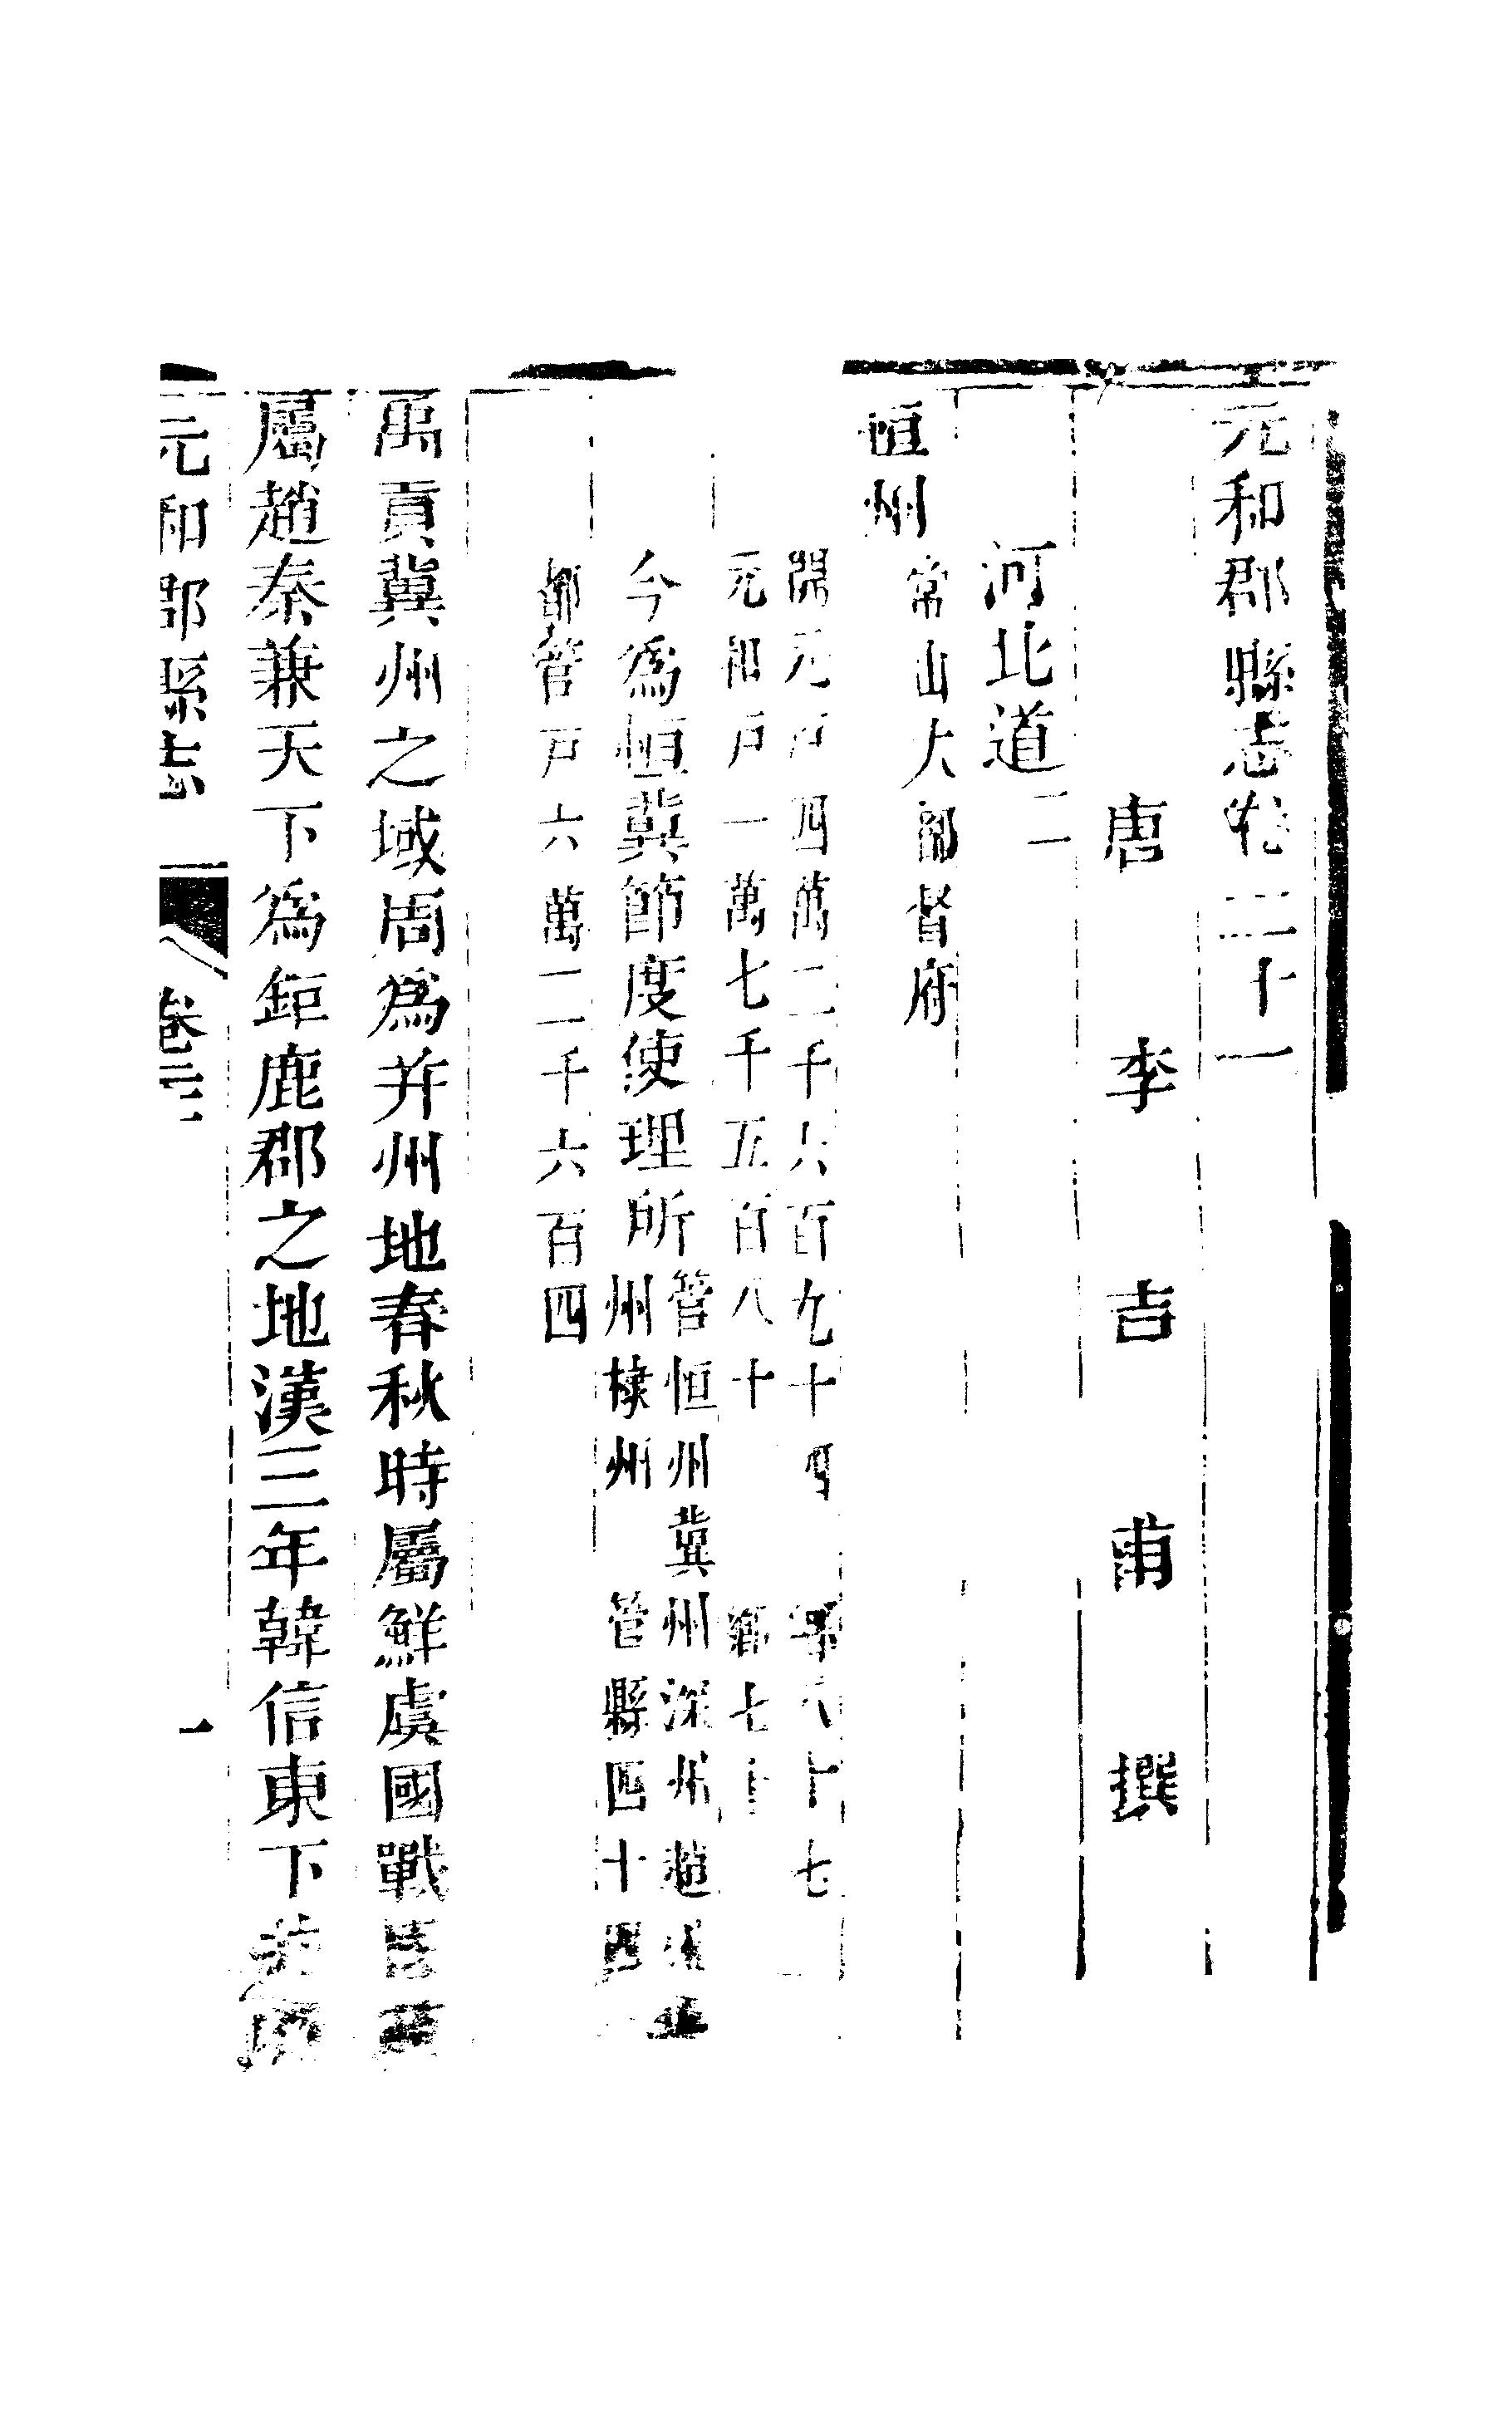 元和郡縣志卷二十一
唐李吉甫撰
河北道二
恒州常山大都督府
開元戶四萬二千六百九十四 鄉八十七
元和戶一萬七千五百八十 鄉七十
今爲恒冀節度使理所管恒州冀州深州趙州
州棣州 管縣四十
都管戶六萬二千六百四
禹貢冀州之域周爲并州地春秋時屬鮮虞國戰
屬趙秦兼天下爲鉅鹿郡之地漢三年韓信東下
元和郡縣志 卷二十一 一